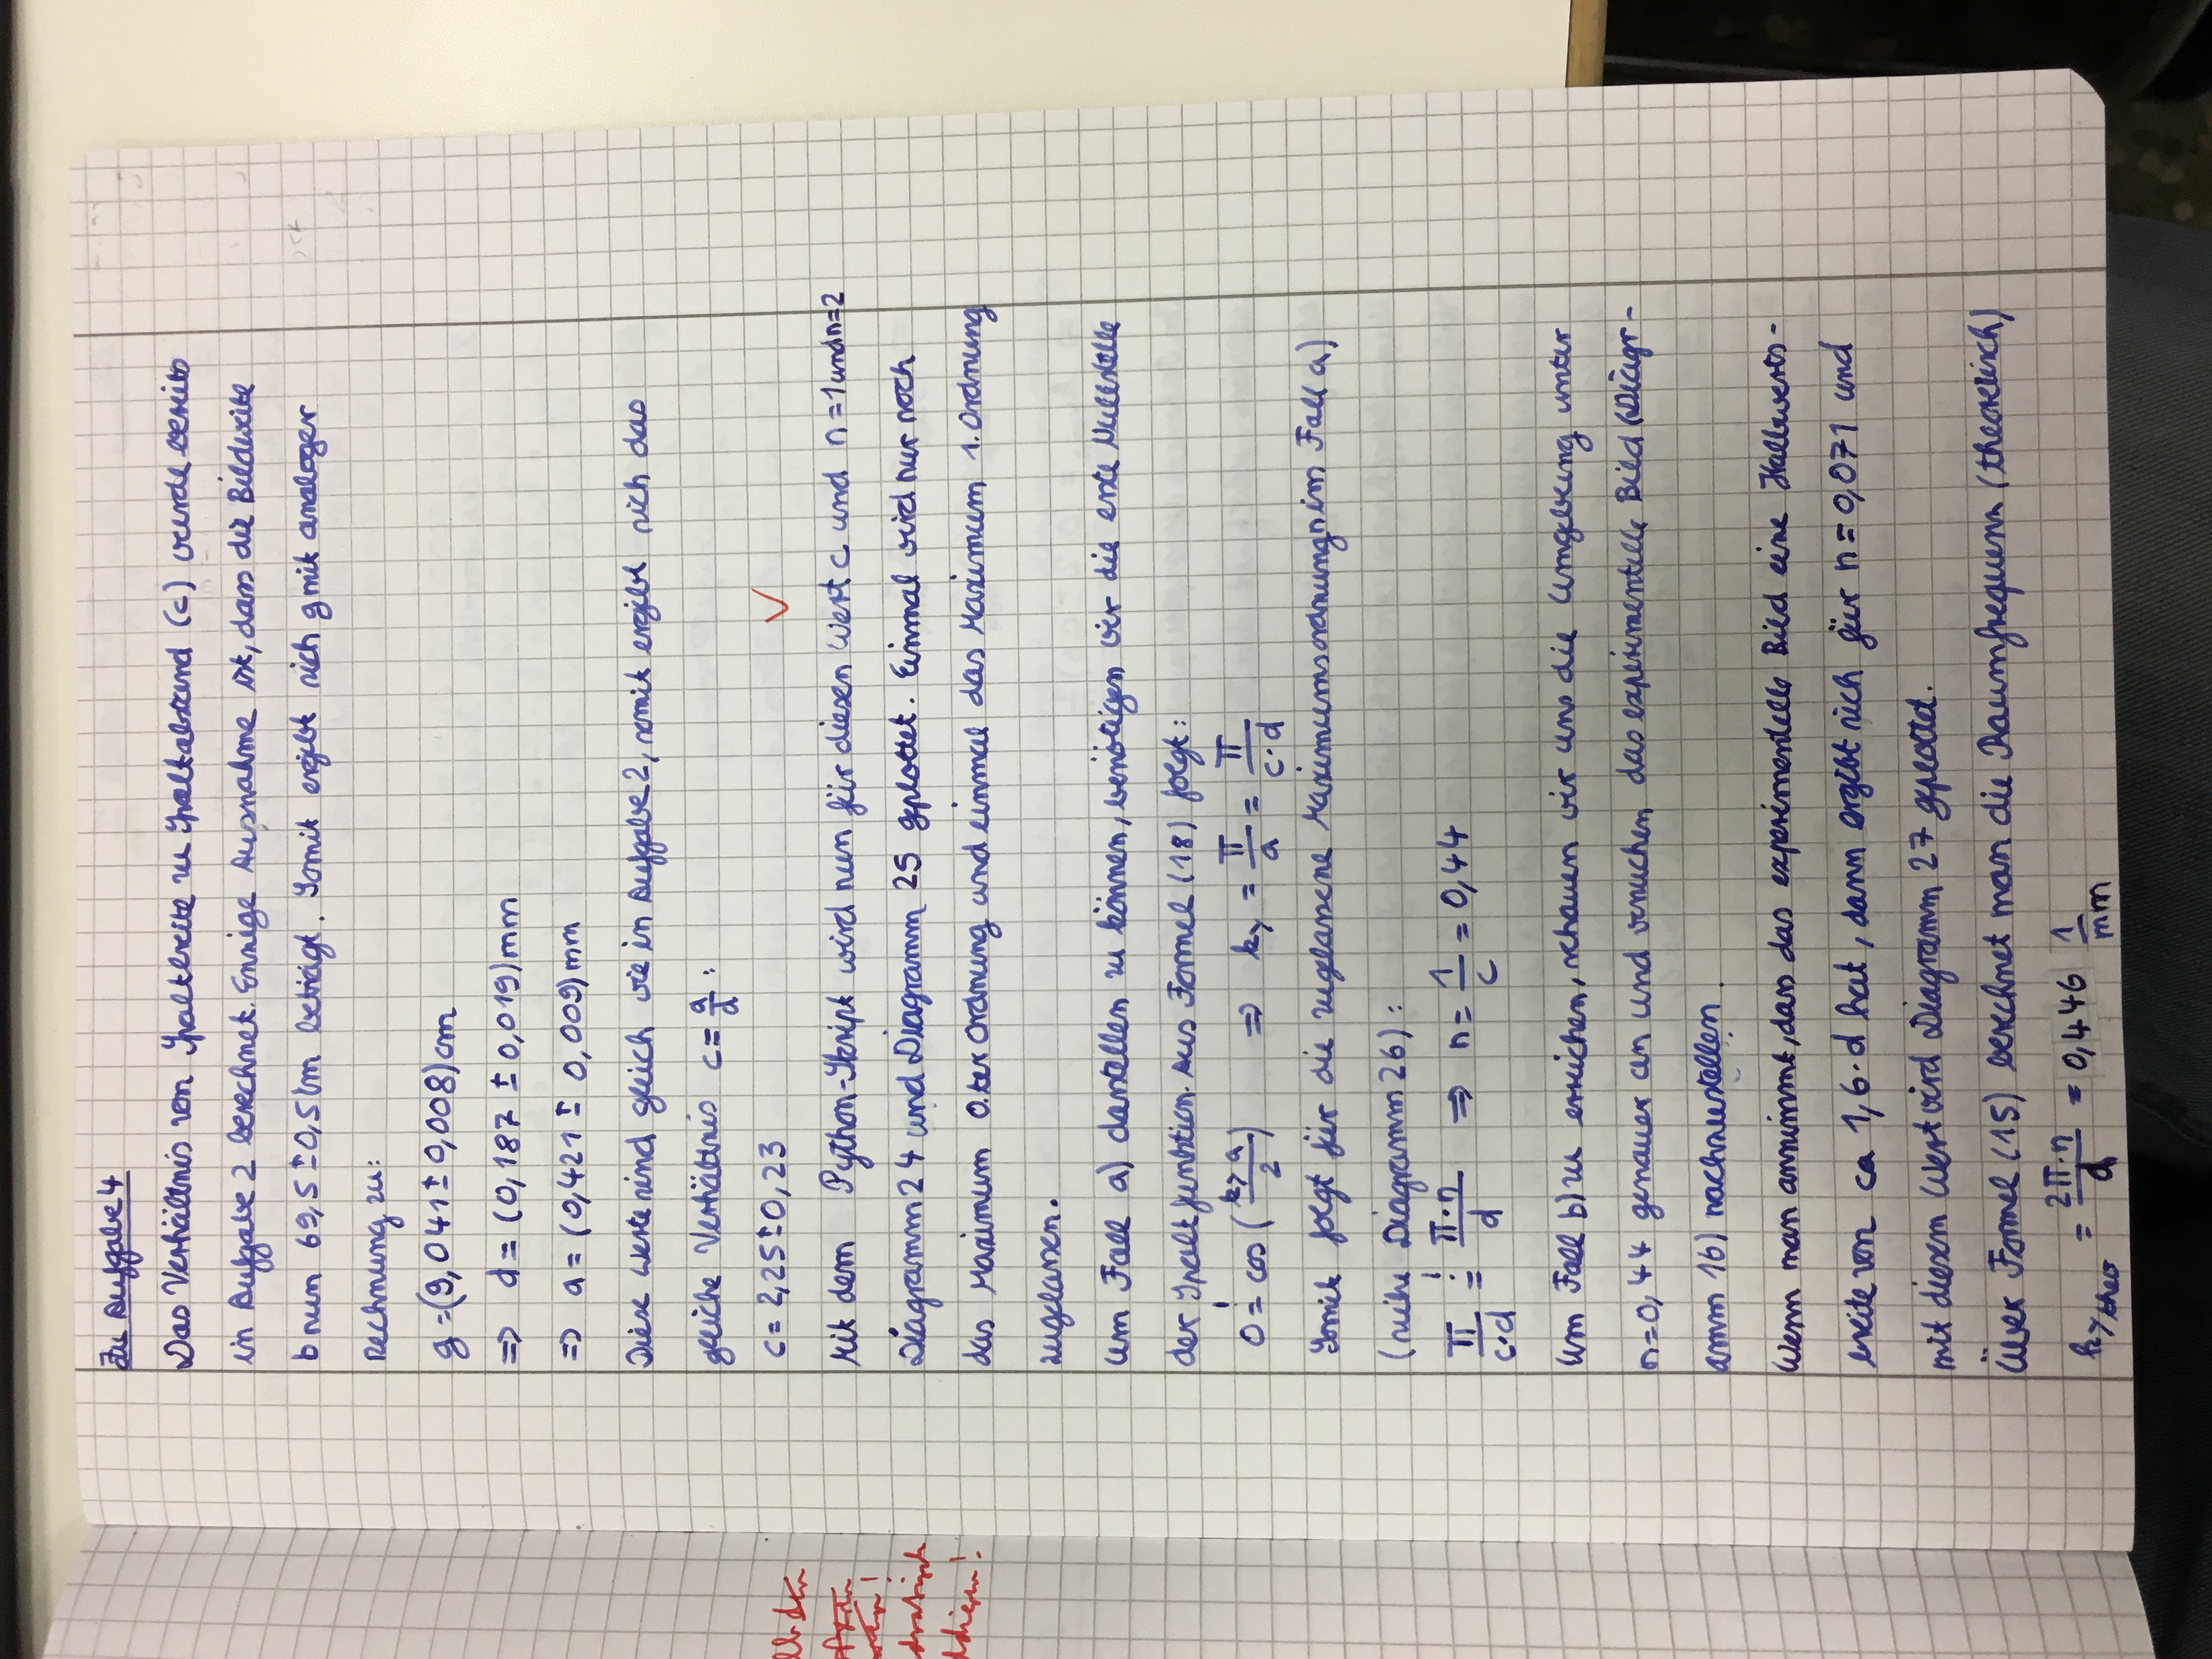 Zu Aufgabe 4
Das Verhältnis von Spaltbreite zu Spaltabstand (c) wurde bereits
in Aufgabe 2 berechnet. Ennige Ausnahme ist, dass die Bildweite
b nun 69,5 ± 0,5 cm beträgt. Somit ergibt sich g mit analoger
Rechnung zu:
g = (9,041 ± 0,008) cm
=> d = (0,187 ± 0,019) mm
=> a = (0,421 ± 0,009) mm
Diese Werte sind gleich wie in Aufgabe 2, somit ergibt sich das
gleiche Verhältnis c = a/d :
c = 2,25 ± 0,23 ✓
Mit dem Python-Skript wird nun für diesen Wert c und n = 1 und n = 2
Diagramm 24 und Diagramm 25 geplottet. Einmal wird nur noch
das Maximum 0.ter Ordnung und einmal das Maximum 1. Ordnung
zugelassen.
Um Fall a) darstellen zu können, benötigen wir die erste Nullstelle
der Spaltfunktion. Aus Formel (18) folgt:
0 =! cos (ky a / 2) => ky = π/a = π/(c·d)
Somit folgt für die zugelassene Maximumsordnung n im Fall a)
(siehe Diagramm 26) :
π/(c·d) =! π·n/d => n = 1/c = 0,44
Um Fall b) zu erreichen, schauen wir uns die Umgebung unter
n = 0,44 genauer an und versuchen das experimentelle Bild (Diagr-
amm 16) nachzustellen.
Wenn man annimmt, dass das experimentelle Bild eine Halbwerts-
breite von ca 1,6·d hat, dann ergibt sich für n = 0,071 und
mit diesem Wert wird Diagramm 27 geplottet.
Über Formel (15) berechnet man die Raumfrequenz (theoretisch)
ky theo = 2π·n/d = 0,446 1/mm